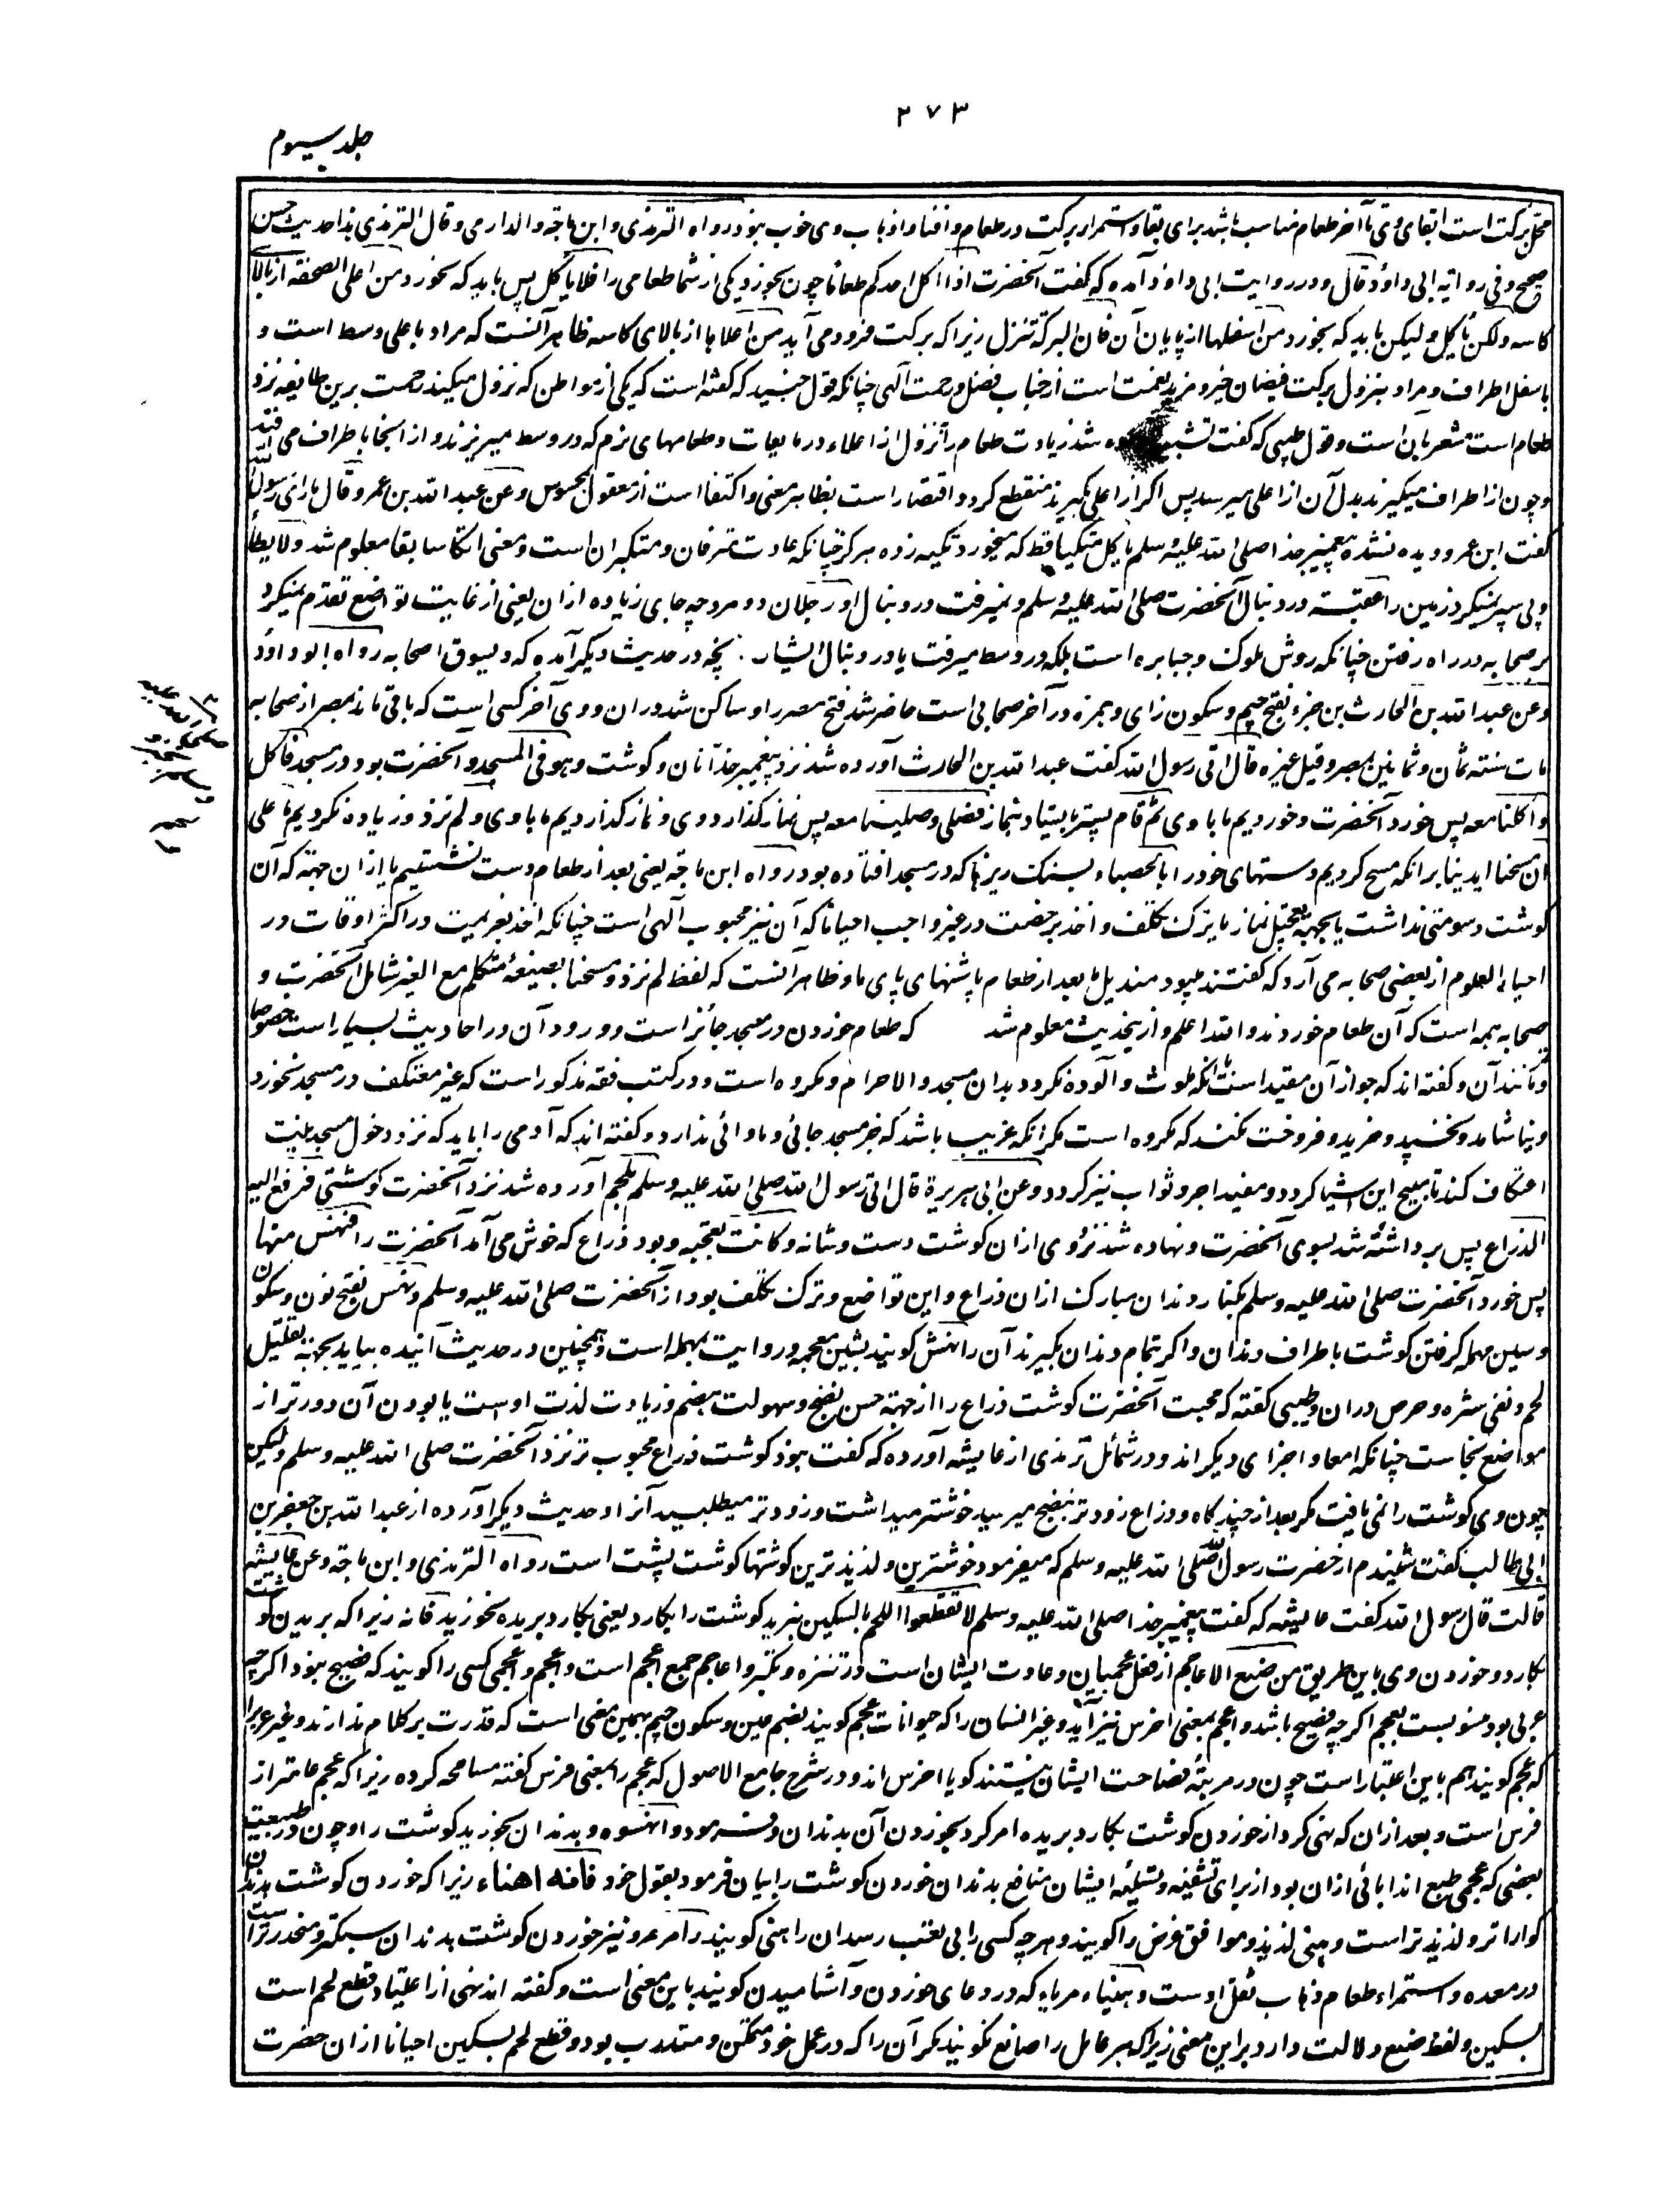 ۲۷۳
جلد سیوم
محل برکت است ابقای وی تا آخر طعام مناسب باشد برای بقا و استمرار برکت در طعام و افنا و اذهاب وی خوب نبود رواه الترمذی و ابن ماجة و الدارمی و قال الترمذی هذا حدیث حسن
صحیح و فی روایة ابی داؤد قال و در روایت ابی داؤد آمده که گفت آنحضرت اذا اکل احدکم طعاما چون بخورد یکی از شما طعامی را فلا یاکل پس باید که نخورد من اعلی الصحفة از بالای
کاسه ولکن یاکل و لیکن باید که بخورد من اسفلها از پایان آن فان البرکة تنزل زیرا که برکت فرود می آید من اعلاها از بالای کاسه ظاهر آنست که مراد باعلی وسط است و
باسفل اطراف و مراد بنزول برکت فیضان خیر و مزید نعمت است از جناب فضل و رحمت الهی چنانکه قول جنید که گفته است که یکی از مواطن که نزول میکند رحمت برین طایفه نزد
طعام است مشعر بآن است و قول طیبی که گفت تشبیه ده شد زیادت طعام را بنزول از اعلاء در مایعات و طعامهای نرم که در وسط میریزند و از آنجا باطراف می افتد
و چون از اطراف میگیرند بدل آن از اعلی میرسد پس اگر از اعلی گیرند منقطع گردد اقتصار است بظاهر معنی و اکتفا است از معقول بمحسوس و عن عبد الله بن عمرو قال ما رای رسول الله
گفت ابن عمرو دیده نشده پیغمبر خدا صلی الله علیه و سلم یاکل متکیا قط که میخورد تکیه زده هرگز چنانکه عادت مترفان و متکبران است و معنی اتکا سابقا معلوم شد و لا یطأ
و پی سپر نمیکرد زمین را عقبه در دنبال آنحضرت صلی الله علیه و سلم و نمیرفت در دنبال او رجلان دو مرد چه جای زیاده ازان یعنی از غایت تواضع تقدم نمیکرد
بر صحابه در راه رفتن چنانکه روش ملوک و جبابره است بلکه در وسط میرفت یا در دنبال ایشان چنانچه در حدیث دیگر آمده که و یسوق اصحابه رواه ابو داؤد
و عن عبد الله بن الحارث بن جزء بفتح جیم و سکون زای و همزه در آخر صحابی است حاضر شد فتح مصر را و ساکن شد دران و وی آخر کسی است که باقی ماند بمصر از صحابه
مات سنة ثمان و ثمانین بمصر و قیل غیره قال اتی رسول الله گفت عبد الله بن الحارث آورده شد نزد پیغمبر خدا نان و گوشت و هو فی المسجد و آنحضرت بود در مسجد فاکل
و اکلنا معه پس خورد آنحضرت و خوردیم ما با وی ثم قام پستر بایستاد بنماز فصلی و صلینا معه پس نماز گذارد وی و نماز گذاردیم ما با وی و لم نزد و زیاده نکردیم ما علی
ان مسحنا ایدینا برانکه مسح کردیم دستهای خود را بالحصباء بسنگ ریزها که در مسجد افتاده بود رواه ابن ماجة یعنی بعد از طعام دست نشستیم یا ازان جهة که آن
گوشت دسومتی نداشت یا بجهة تعجیل نماز یا بترک تکلف و اخذ برخصت در غیر واجب احیانا که آن نیز محبوب الهی است چنانکه اخذ بعزیمت در اکثر اوقات در
احیاء العلوم از بعضی صحابه می آرد که گفتند بود مندیل ما بعد از طعام پاشنهای پای ما و ظاهر آنست که لفظ لم نزد و مسحنا بصیغهٔ متکلم مع الغیر شامل آنحضرت و
صحابه همه است که آن طعام خوردند و الله اعلم و ازینحدیث معلوم شد که طعام خوردن در مسجد جائز است و ورود آن در احادیث بسیار است خصوصا
و مانند آن و گفته اند که جواز آن مقید است بآنکه ملوث و آلوده نگردد بدان مسجد و الا حرام و مکروه است و در کتب فقه مذکور است که غیر معتکف در مسجد نخورد
و نیاشامد و نخسپد و خرید و فروخت نکند که مکروه است مگر آنکه غریب باشد که جز مسجد جائی و ماوائی ندارد و گفته اند که آدمی را باید که نزد دخول مسجد نیت
اعتکاف کند تا مبیح این اشیا گردد و مفید اجر و ثواب نیز گردد و عن ابی هریرة قال اتی رسول الله صلی الله علیه و سلم بلحم آورده شد نزد آنحضرت گوشتی فرفع الیه
الذراع پس برداشته شد بسوی آنحضرت و نهاده شد نزد وی ازان گوشت دست و شانه و کانت تعجبه و بود ذراع که خوش می آمد آنحضرت را فنهس منها
پس خورد آنحضرت صلی الله علیه و سلم بکنار دندان مبارک ازان ذراع و این تواضع و ترک تکلف بود از آنحضرت صلی الله علیه و سلم و نهس بفتح نون و سکون
و سین مهمله گرفتن گوشت باطراف دندان و اگر بتمام دندان بگیرند آن را نهش گویند بشین معجمه و روایت بمهمله است و همچنین در حدیث آئنده بیاید بجهة تقلیل
لحم و نفی شره و حرص دران و طیبی گفته که محبت آنحضرت گوشت ذراع را از جهة حسن نضج و سهولت هضم و زیادت لذت اوست یا بودن آن دورتر از
مواضع نجاست چنانکه امعا و اجزای دیگراند و در شمائل ترمذی از عایشه آورده که گفت نبود گوشت ذراع محبوب تر نزد آنحضرت صلی الله علیه و سلم و لیکن
چون وی گوشت را نمی یافت مگر بعد از چند گاه و ذراع زودتر بنضج میرسید خوشتر میداشت و زودتر میطلبید آنرا و حدیث دیگر آورده از عبد الله بن جعفر بن
ابی طالب گفت شنیدم از حضرت رسول الله صلی الله علیه و سلم که میفرمود خوشترین و لذیذترین گوشتها گوشت پشت است رواه الترمذی و ابن ماجة و عن عایشة
قالت قال رسول الله گفت عایشه که گفت پیغمبر خدا صلی الله علیه و سلم لا تقطعوا اللحم بالسکین نبرید گوشت را بکارد یعنی بکارد بریده نخورید فانه زیرا که بریدن گوشت
بکارد و خوردن وی باین طریق من صنیع الاعاجم از فعل عجمیان و عادت ایشان است در تنزه و تکبر و اعاجم جمع اعجم است و اعجم و اعجمی کسی را گویند که فصیح نبود اگرچه
عربی بود منسوبست بعجم اگرچه فصیح باشد و اعجم بمعنی اخرس نیز آید و غیر انسان را که حیوانات عجم گویند بضم عین و سکون جیم بهمین معنی است که قدرت بر کلام ندارند و غیر عرب را
که عجم گویند هم باین اعتبار است چون در مرتبهٔ فصاحت ایشان نیستند گویا اخرس اند و در شرح جامع الاصول که عجم را بمعنی فرس گفته مسامحه کرده زیرا که عجم عامتر از
فرس است و بعد ازان که نهی کرد از خوردن گوشت بکارد بریده امر کرد بخوردن آن بدندان و فرمود و انهسوه و بدندان بخورید گوشت را و چون در طبیعت
بعضی که عجمی طبع اند ابائی ازان بود از برای تشفیه و تسلیهٔ ایشان منافع بدندان خوردن گوشت را بیان فرمود بقول خود فانه اهناء زیرا که خوردن گوشت بدندان
گواراتر و لذیذتر است و هنی لذیذ و موافق غرض را گویند و هرچه کسی را بی تعب رسد آن را هنی گویند و امرء و نیز خوردن گوشت بدندان سبکتر و منحدرتر است
در معده و استمراء طعام ذهاب ثقل اوست و هنیاء مریاء که در دعای خوردن و آشامیدن گویند باین معنی است و گفته اند نهی از اعتیاد قطع لحم است
بسکین و لفظ صنیع دلالت دارد براین معنی زیرا که هر عامل را صانع نگویند مگر آن را که در عمل خود متمکن و متدرب بود و قطع لحم بسکین احیانا ازان حضرت